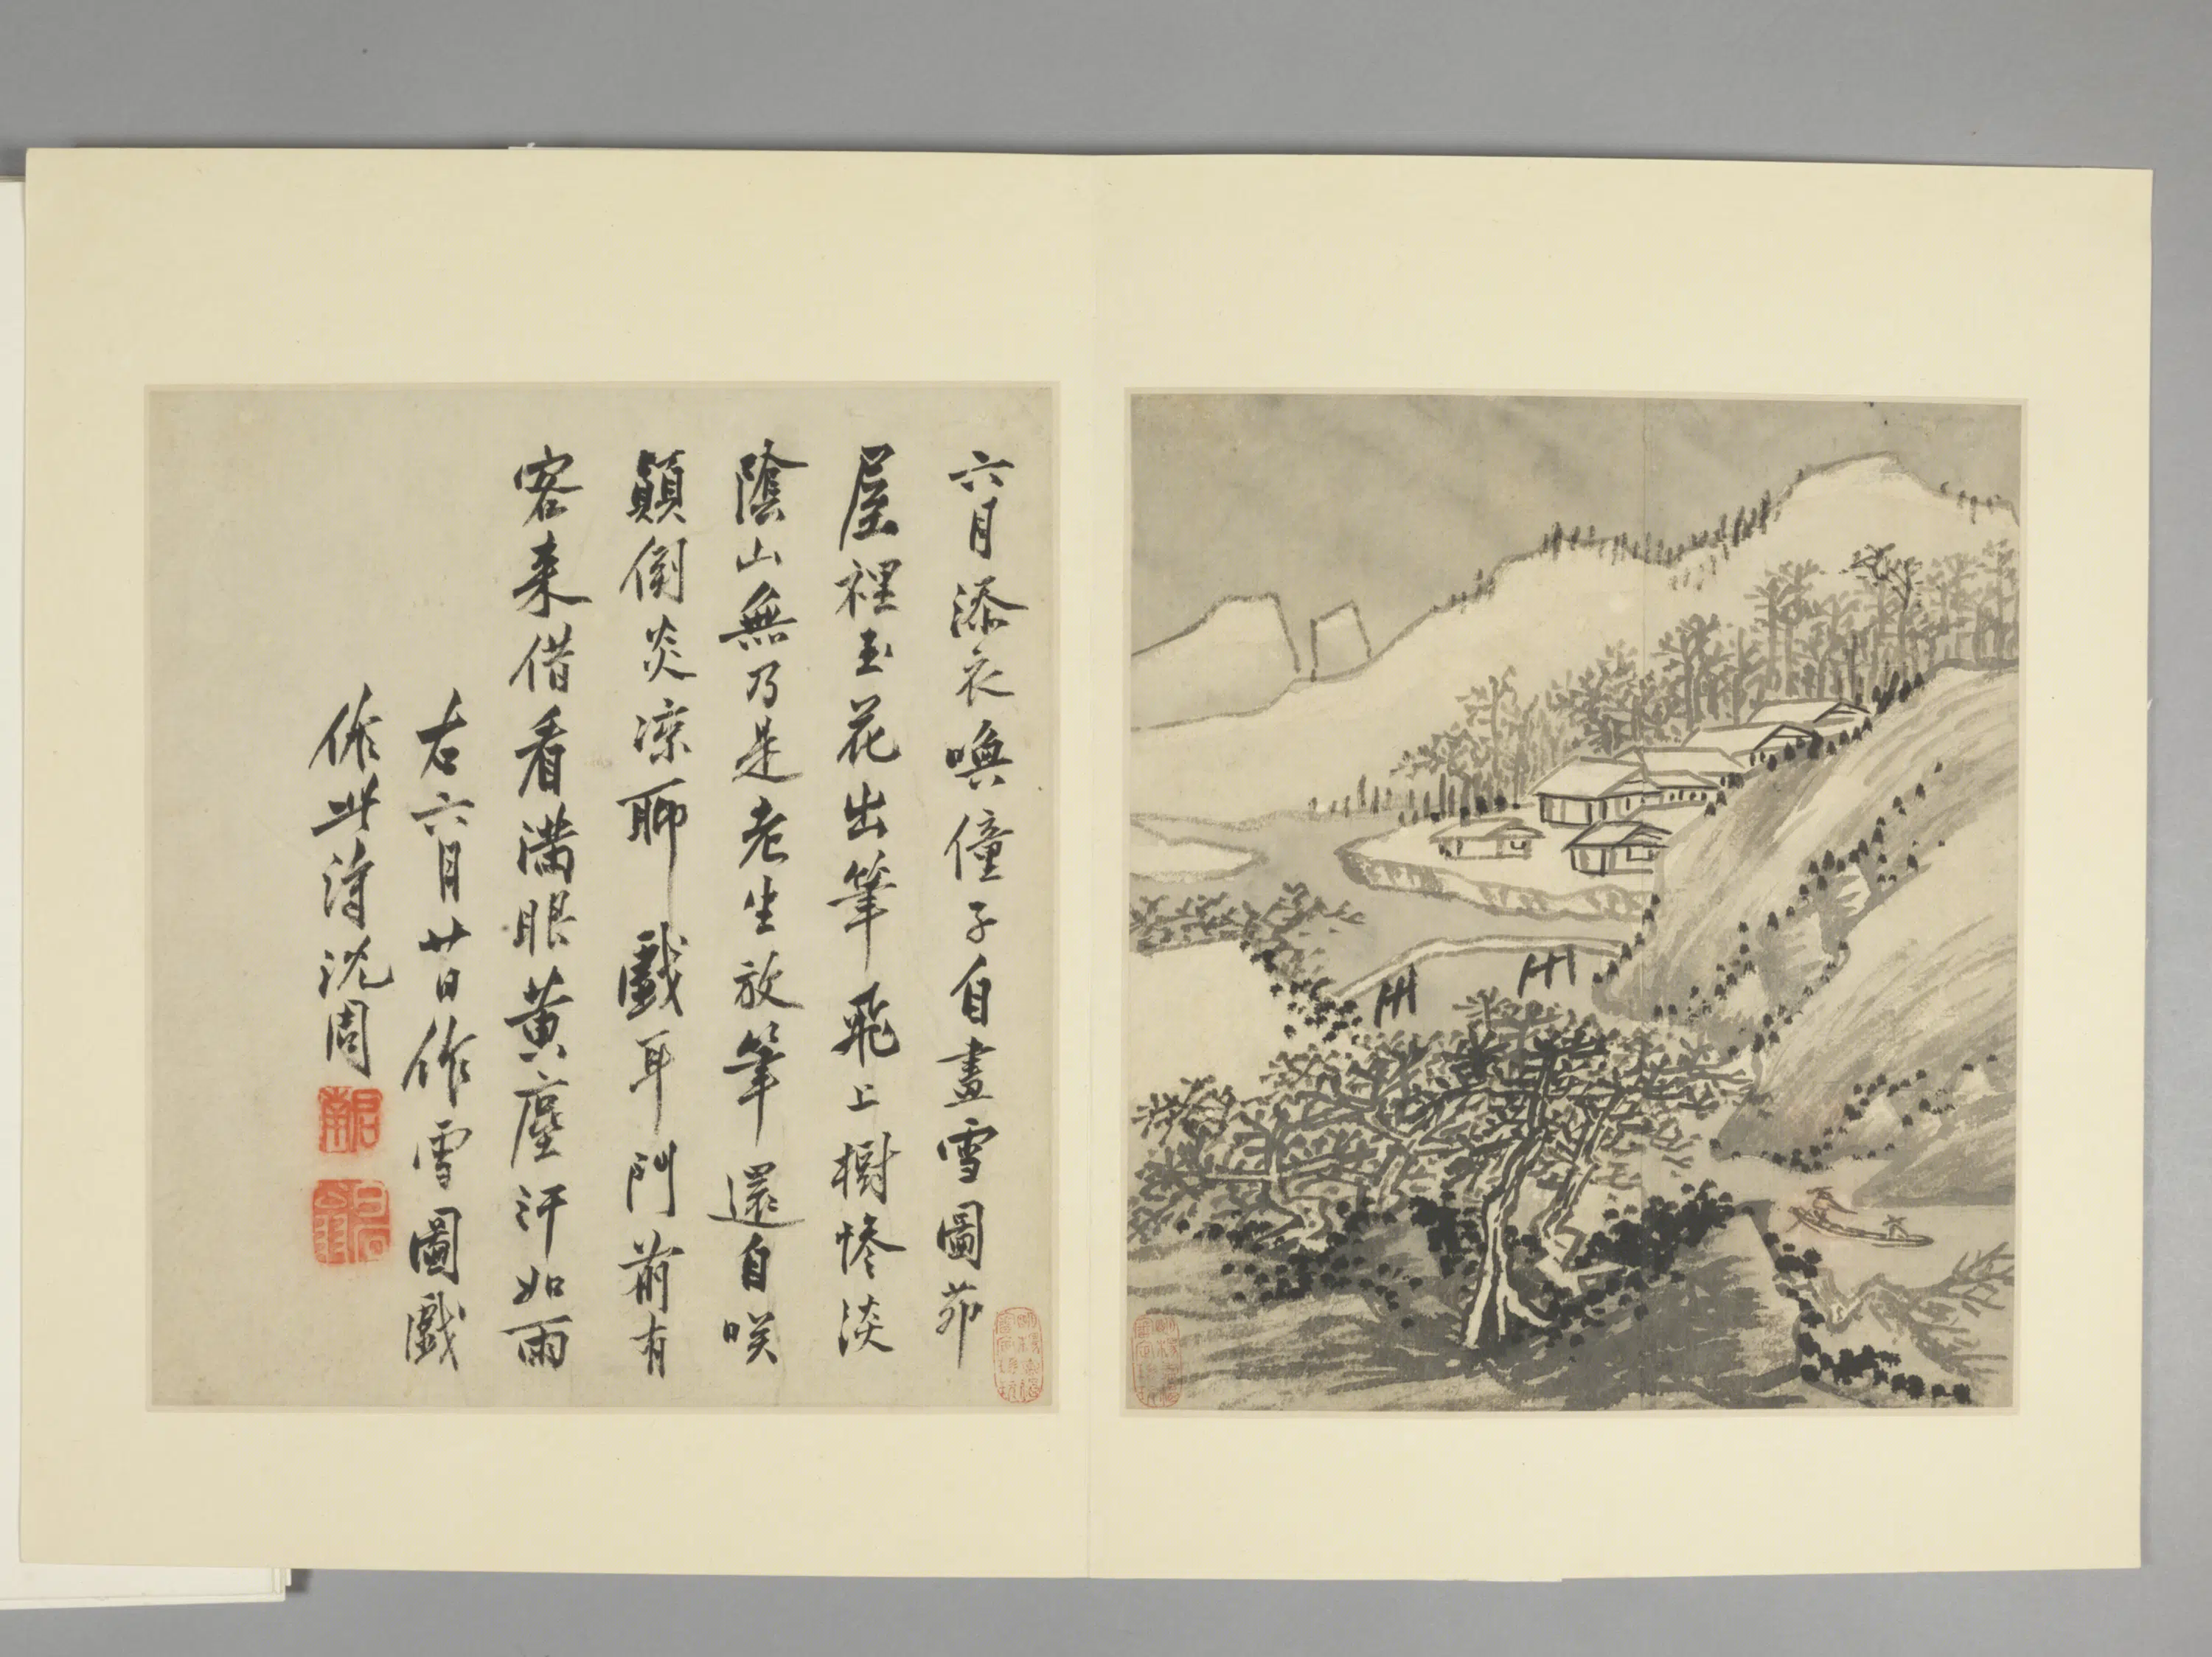 六月添衣喚僮子自畫雪圖茆
屋裡玉花出筆飛上樹慘淡
陰山無乃是老生放筆還自咲
顛倒炎凉聊戲耳門前有
客来借看滿眼黄塵汗如雨
右六月廿日作雪圖戲
作此詩沈周
啟南